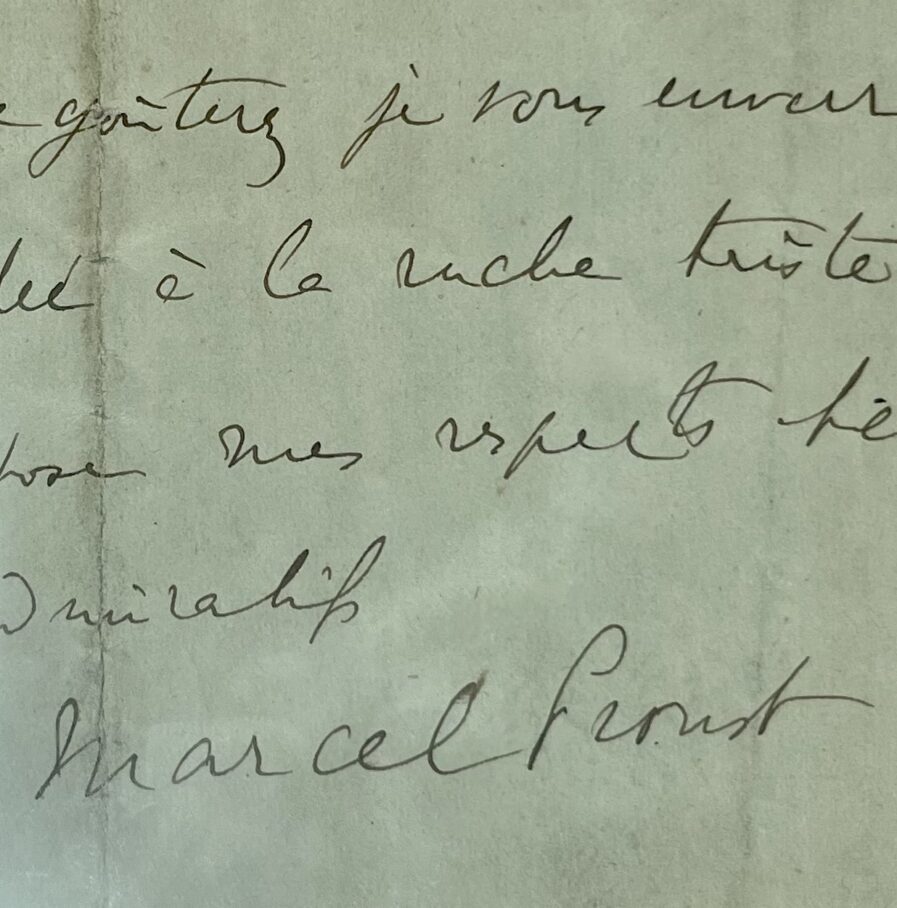 goûterez je vous enverr
à la ruche triste
mes respects
dmiratifs
Marcel Proust